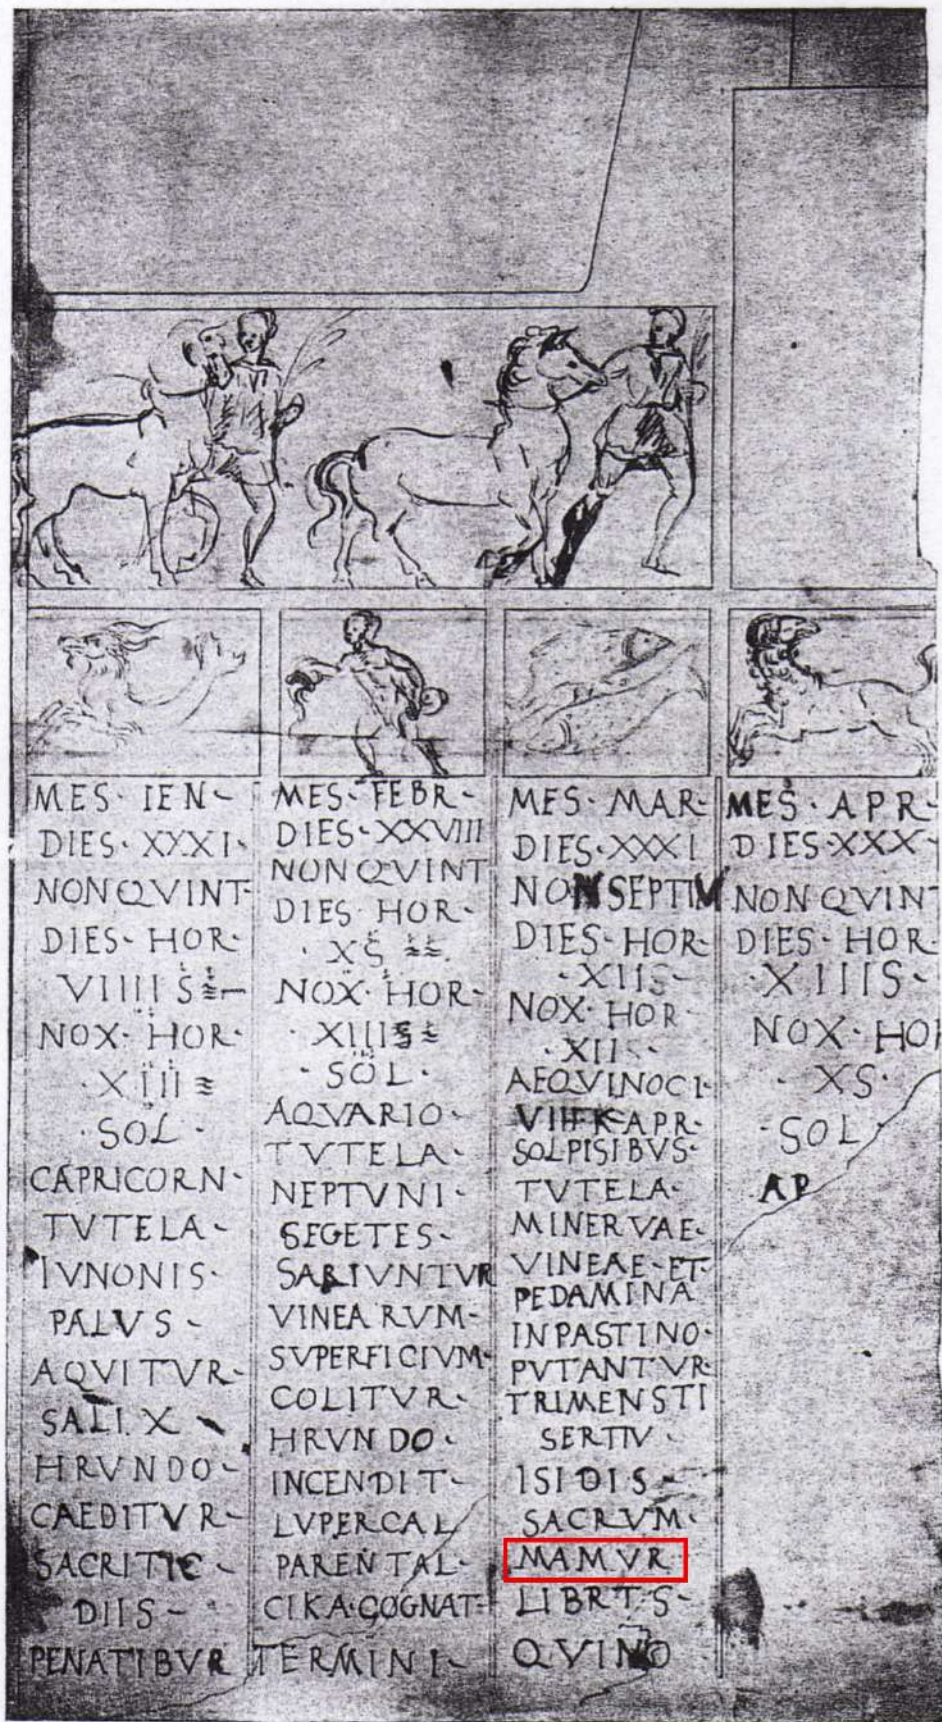 MES· IEN-
DIES· XXXI·
NONQVINT-
DIES· HOR·
VIIIIS
NOX· HOR·
·XIIII
·SOL·
CAPRICORN-
TVTELA-
IVNONIS·
PALVS-
AQVITVR-
SALI.X
HRVNDO-
CAEDITVR-
SACRITIC
DIIS-
PENATIBVR
MES· FEBR-
DIES·XXVIII
NONQVINT
DIES HOR·
·XS
NOX· HOR-
·XIIIS
·SOL·
AQVARIO·
TVTELA·
NEPTVNI·
SEGETES-
SARIVNTVR
VINEARVM-
SVPERFICIVM·
COLITVR·
HRVNDO·
INCENDIT-
LVPERCAL
PARENTAL·
CIKA·COGNAT
TERMINI-
MES· MAR·
DIES·XXXI
NONSEPTIM
DIES· HOR·
·XIIS-
NOX· HOR·
·XIIS·
AEQVINOCI·
VIIIKAPR·
SOLPISIBVS·
TVTELA·
MINERVAE·
VINEAE-ET·
PEDAMINA
INPASTINO·
PVTANTVR·
TRIMENSTI
SERTIV·
ISIDIS-
SACRVM·
MAMVR
LIBRT·S·
QVINO
MES· APR-
DIES·XXX-
NONQVINT
DIES· HOR
·XIIIS·
NOX· HOR
·XS·
-SOL
AP